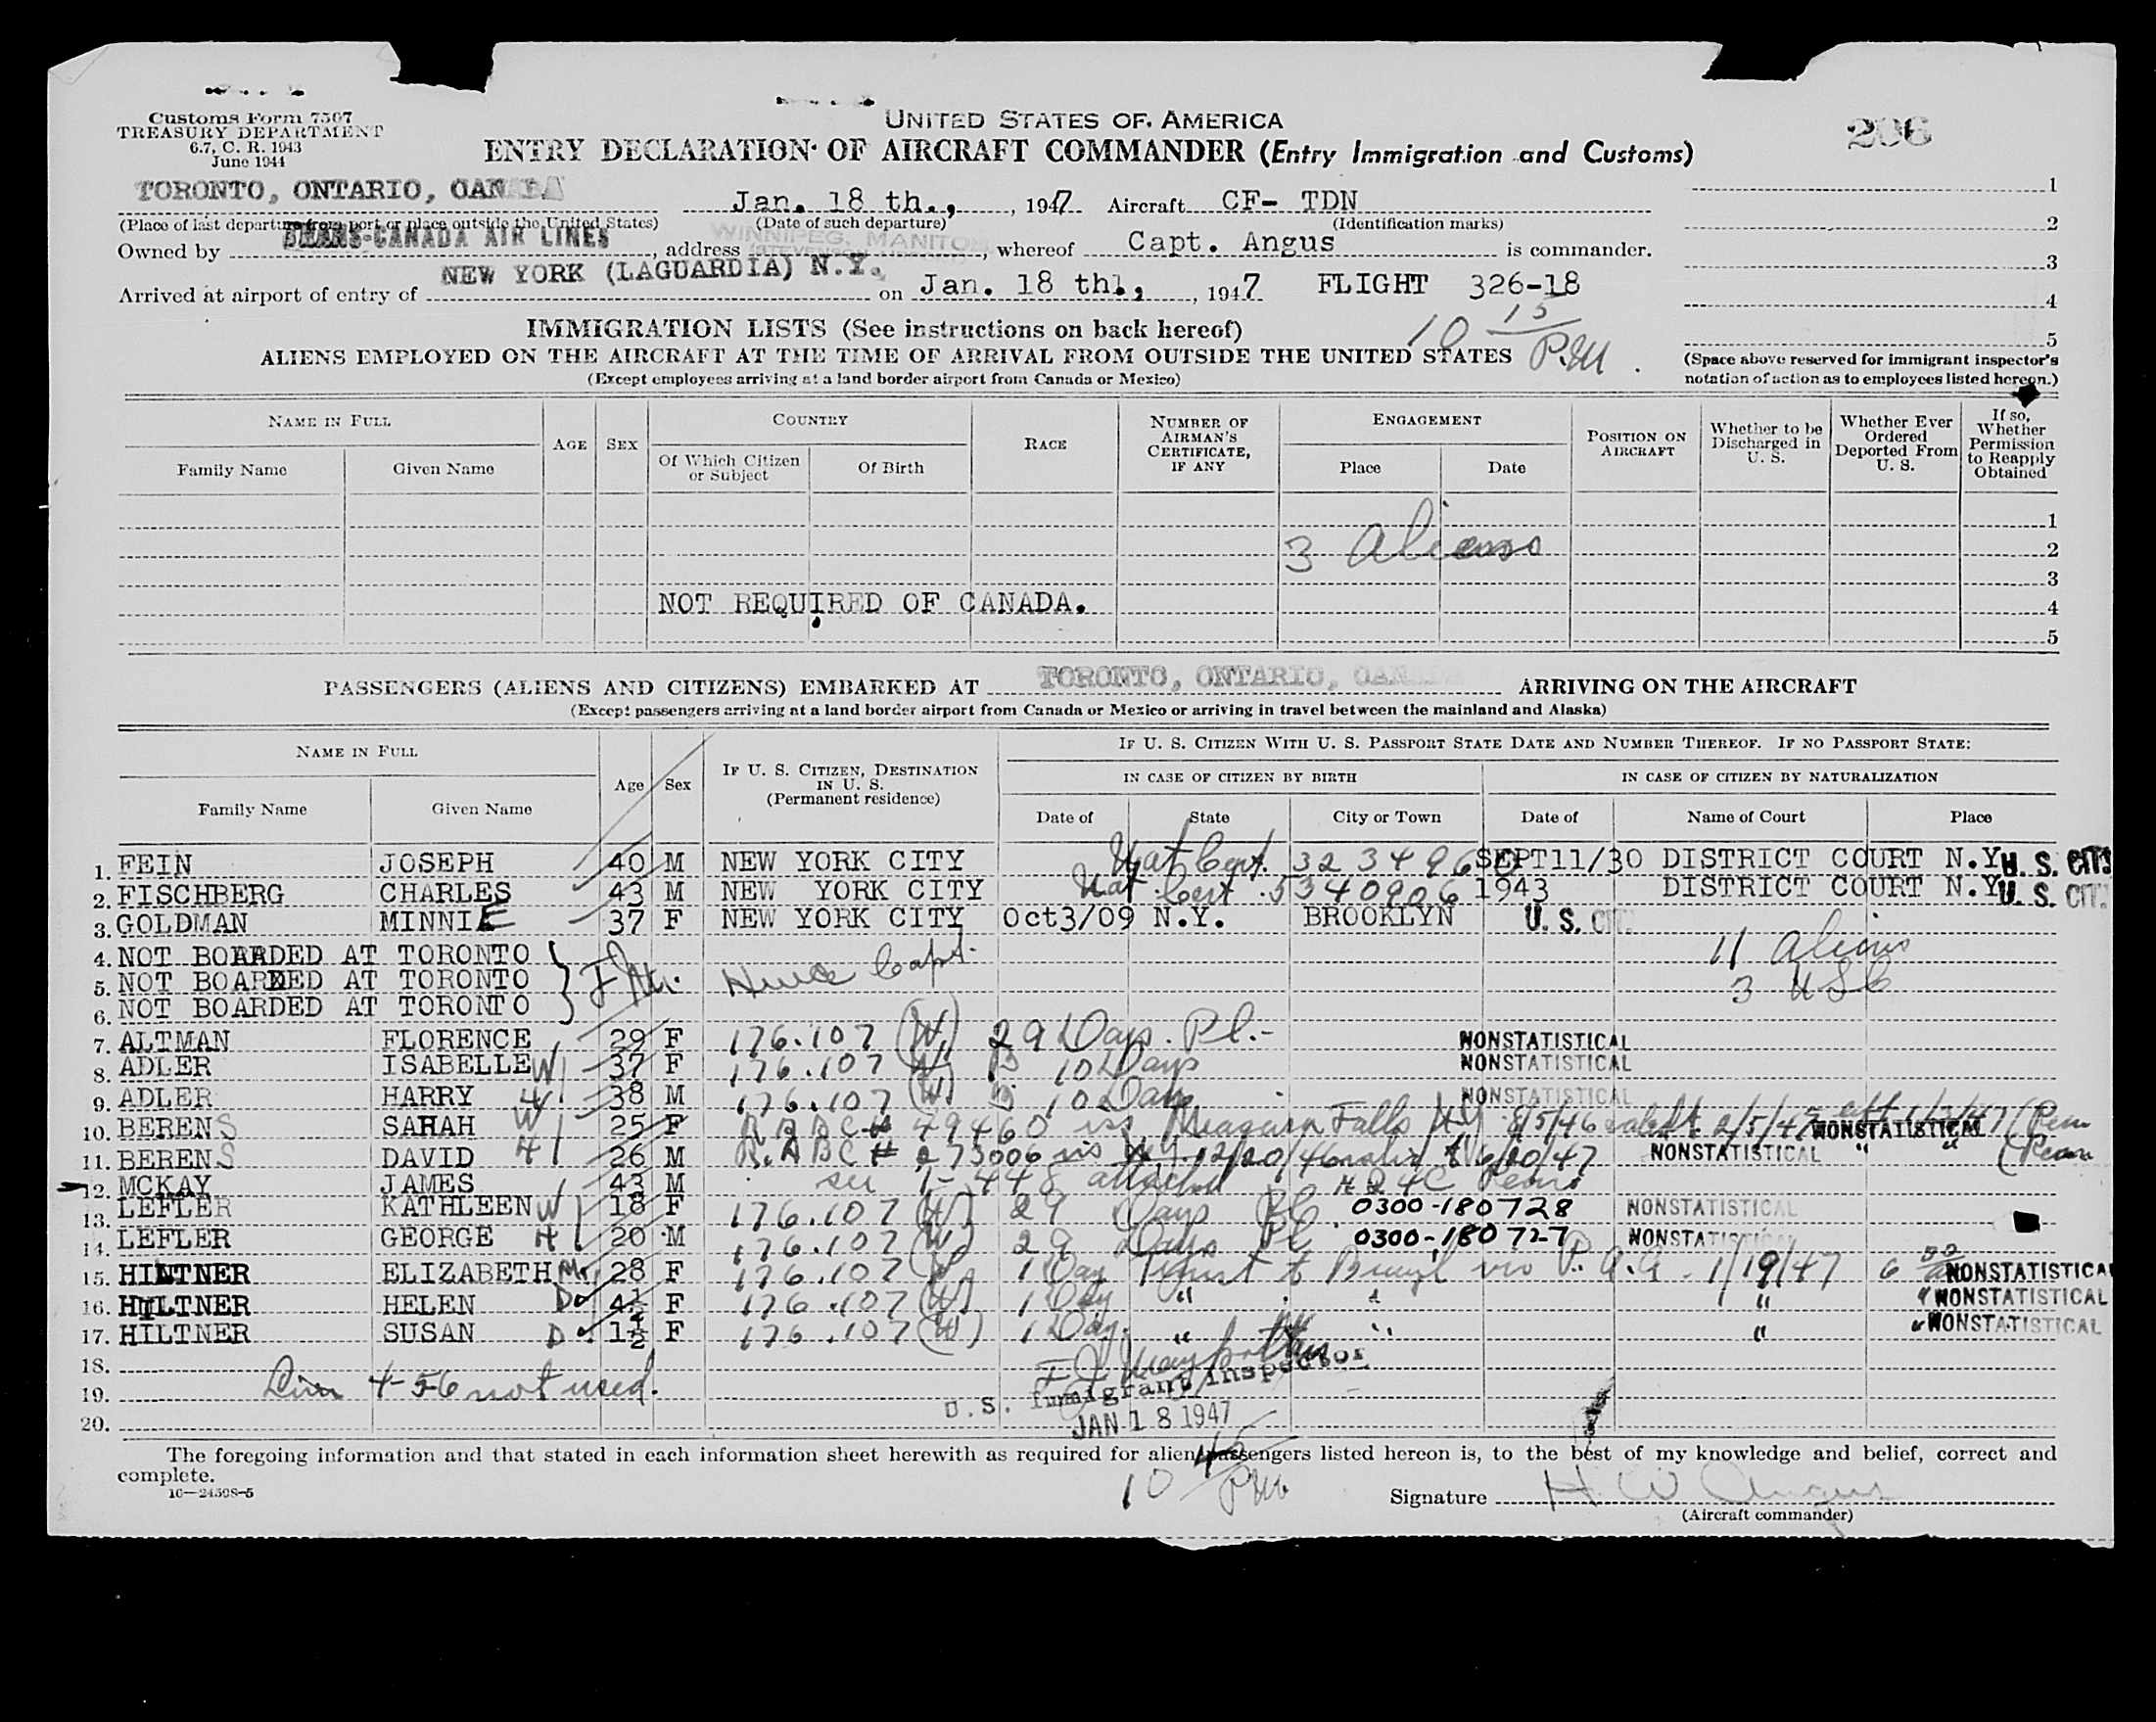 Customs Form 7507
TREASURY DEPARTMENT
6.7, C. R. 1943
June 1944
UNITED STATES OF AMERICA
206
ENTRY DECLARATION OF AIRCRAFT COMMANDER (Entry Immigration and Customs)
TORONTO, ONTARIO, CANADA Jan. 18 th., , 1947 Aircraft CF- TDN
(Place of last departure from port or place outside the United States) (Date of such departure) (Identification marks)
Owned by TRANS-CANADA AIR LINES , address WINNIPEG, MANITO , whereof Capt. Angus is commander.
Arrived at airport of entry of NEW YORK (LAGUARDIA) N.Y. on Jan. 18 th., , 1947 FLIGHT 326-18
10 15 P.M.
1
2
3
4
5
(Space above reserved for immigrant inspector's notation of action as to employees listed hereon.)
IMMIGRATION LISTS (See instructions on back hereof)
ALIENS EMPLOYED ON THE AIRCRAFT AT THE TIME OF ARRIVAL FROM OUTSIDE THE UNITED STATES
(Except employees arriving at a land border airport from Canada or Mexico)
NAME IN FULL AGE SEX COUNTRY RACE NUMBER OF AIRMAN'S CERTIFICATE, IF ANY ENGAGEMENT POSITION ON AIRCRAFT Whether to be Discharged in U. S. Whether Ever Ordered Deported From U. S. If so, Whether Permission to Reapply Obtained
Family Name Given Name Of Which Citizen or Subject Of Birth Place Date
1
3 Aliens 2
3
NOT REQUIRED OF CANADA. 4
5
PASSENGERS (ALIENS AND CITIZENS) EMBARKED AT TORONTO, ONTARIO, CAN ARRIVING ON THE AIRCRAFT
(Except passengers arriving at a land border airport from Canada or Mexico or arriving in travel between the mainland and Alaska)
NAME IN FULL Age Sex IF U. S. CITIZEN, DESTINATION IN U. S. (Permanent residence) IF U. S. CITIZEN WITH U. S. PASSPORT STATE DATE AND NUMBER THEREOF. IF NO PASSPORT STATE:
IN CASE OF CITIZEN BY BIRTH IN CASE OF CITIZEN BY NATURALIZATION
Family Name Given Name Date of State City or Town Date of Name of Court Place
1. FEIN JOSEPH 40 M NEW YORK CITY Nat Cert. 3234960 SEPT11/30 DISTRICT COURT N.Y. U. S. CIT.
2. FISCHBERG CHARLES 43 M NEW YORK CITY Nat. Cert. 5340906 1943 DISTRICT COURT N.Y. U. S. CIT.
3. GOLDMAN MINNIE 37 F NEW YORK CITY Oct3/09 N.Y. BROOKLYN U. S. CIT.
4. NOT BOARDED AT TORONTO 11 Aliens
5. NOT BOARDED AT TORONTO 3 USC
6. NOT BOARDED AT TORONTO
7. ALTMAN FLORENCE 29 F 176.107 (W) 29 Days. Pl.- NONSTATISTICAL
8. ADLER ISABELLE W 37 F 176.107 (W) B 10 Days NONSTATISTICAL
9. ADLER HARRY H 38 M 176.107 (W) B 10 Days NONSTATISTICAL
10. BERENS SARAH W 25 F RABBC# 49460 iss Niagara Falls NY 8/5/46 2/5/47 NONSTATISTICAL
11. BERENS DAVID H 26 M R.ABC # 273006 iss NY. 12/20/46 valid 6/20/47 NONSTATISTICAL
12. MCKAY JAMES 43 M see 1-448 attached
13. LEFLER KATHLEEN W 18 F 176.107 (W) 29 Days Pl. 0300-180728 NONSTATISTICAL
14. LEFLER GEORGE H 20 M 176.107 (W) 29 Days Pl 0300-180727 NONSTATISTICAL
15. HILTNER ELIZABETH 28 F 176.107 (W) 1 Day 1/19/47 NONSTATISTICAL
16. HILTNER HELEN D 4½ F 176.107 (W) 1 Day " " " " NONSTATISTICAL
17. HILTNER SUSAN D 1½ F 176.107 (W) 1 Day. " " " " NONSTATISTICAL
18.
19. 4-5-6 not used.
U. S. Immigrant Inspector
20. JAN 18 1947
The foregoing information and that stated in each information sheet herewith as required for alien passengers listed hereon is, to the best of my knowledge and belief, correct and
complete.
16—24598-5
10 45 PM
Signature H W Angus
(Aircraft commander)